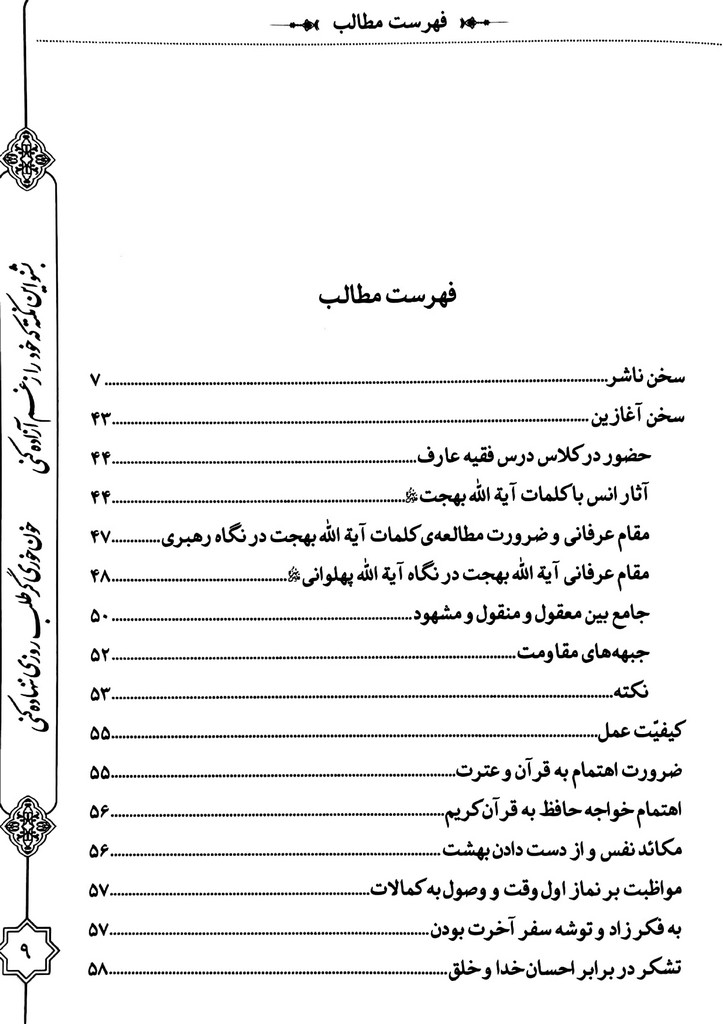 فهرست مطالب
فهرست مطالب
سخن ناشر ........ ۷
سخن آغازین ........ ۴۳
حضور در کلاس درس فقیه عارف ........ ۴۴
آثار انس با کلمات آیة الله بهجت ........ ۴۴
مقام عرفانی و ضرورت مطالعه‌ی کلمات آیة الله بهجت در نگاه رهبری ........ ۴۷
مقام عرفانی آیة الله بهجت در نگاه آیة الله پهلوانی ........ ۴۸
جامع بین معقول و منقول و مشهود ........ ۵۰
جبهه‌های مقاومت ........ ۵۲
نکته ........ ۵۳
کیفیّت عمل ........ ۵۵
ضرورت اهتمام به قرآن و عترت ........ ۵۵
اهتمام خواجه حافظ به قرآن کریم ........ ۵۶
مکائد نفس و از دست دادن بهشت ........ ۵۶
مواظبت بر نماز اول وقت و وصول به کمالات ........ ۵۷
به فکر زاد و توشه سفر آخرت بودن ........ ۵۷
تشکر در برابر احسان خدا و خلق ........ ۵۸
بشنو این نکته که خود را ز غم آزاده کنی
خون خوری گر طلب روزی ننهاده کنی
۹